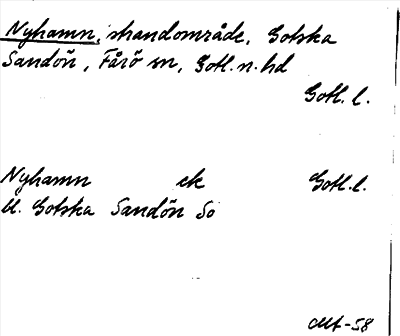 Nyhamn, strandområde, Gotska
Sandön, Fårö sn, Gotl. n. hd
Gotl. l.
Nyhamn ek Gotl. l.
bl. Gotska Sandön So
-58